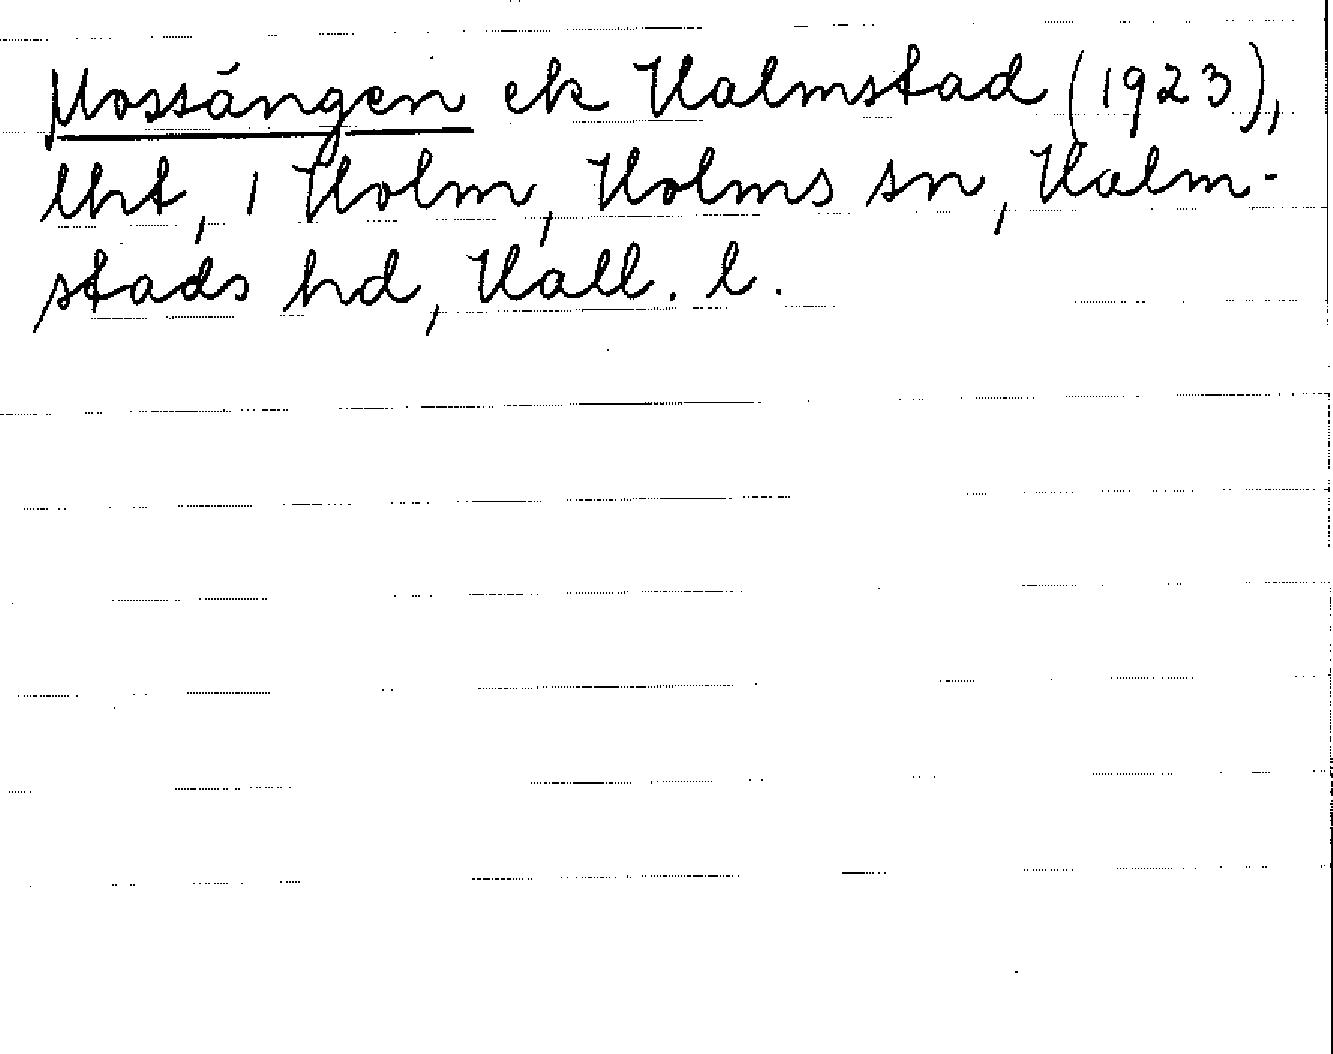 Mossängen ek Halmstad (1923),
lht, i Holm, Holms sn, Halm-
stads hd, Hall. l.